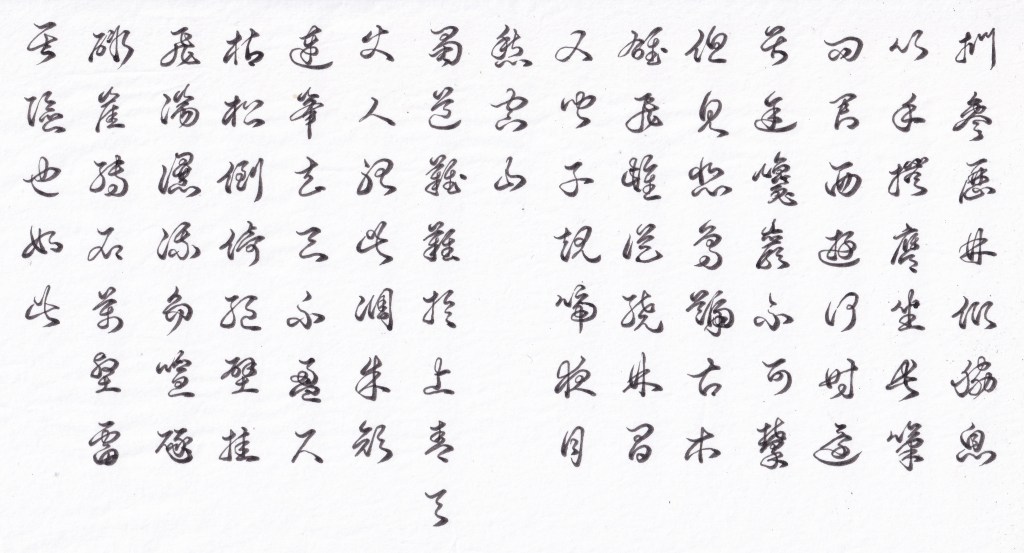 捫參歷井仰脇息
以手撫膺坐長嘆
問君西遊何時還
畏途巉巖不可攀
但見悲鳥號古木
雄飛雌從繞林間
又聞子規啼夜月
愁空山
蜀道難難於上青天
使人聽此凋朱顏
連峯去天不盈尺
枯松倒倚絕壁挂
飛湍瀑流爭喧豗
砯崖轉石萬壑雷
其險也如此